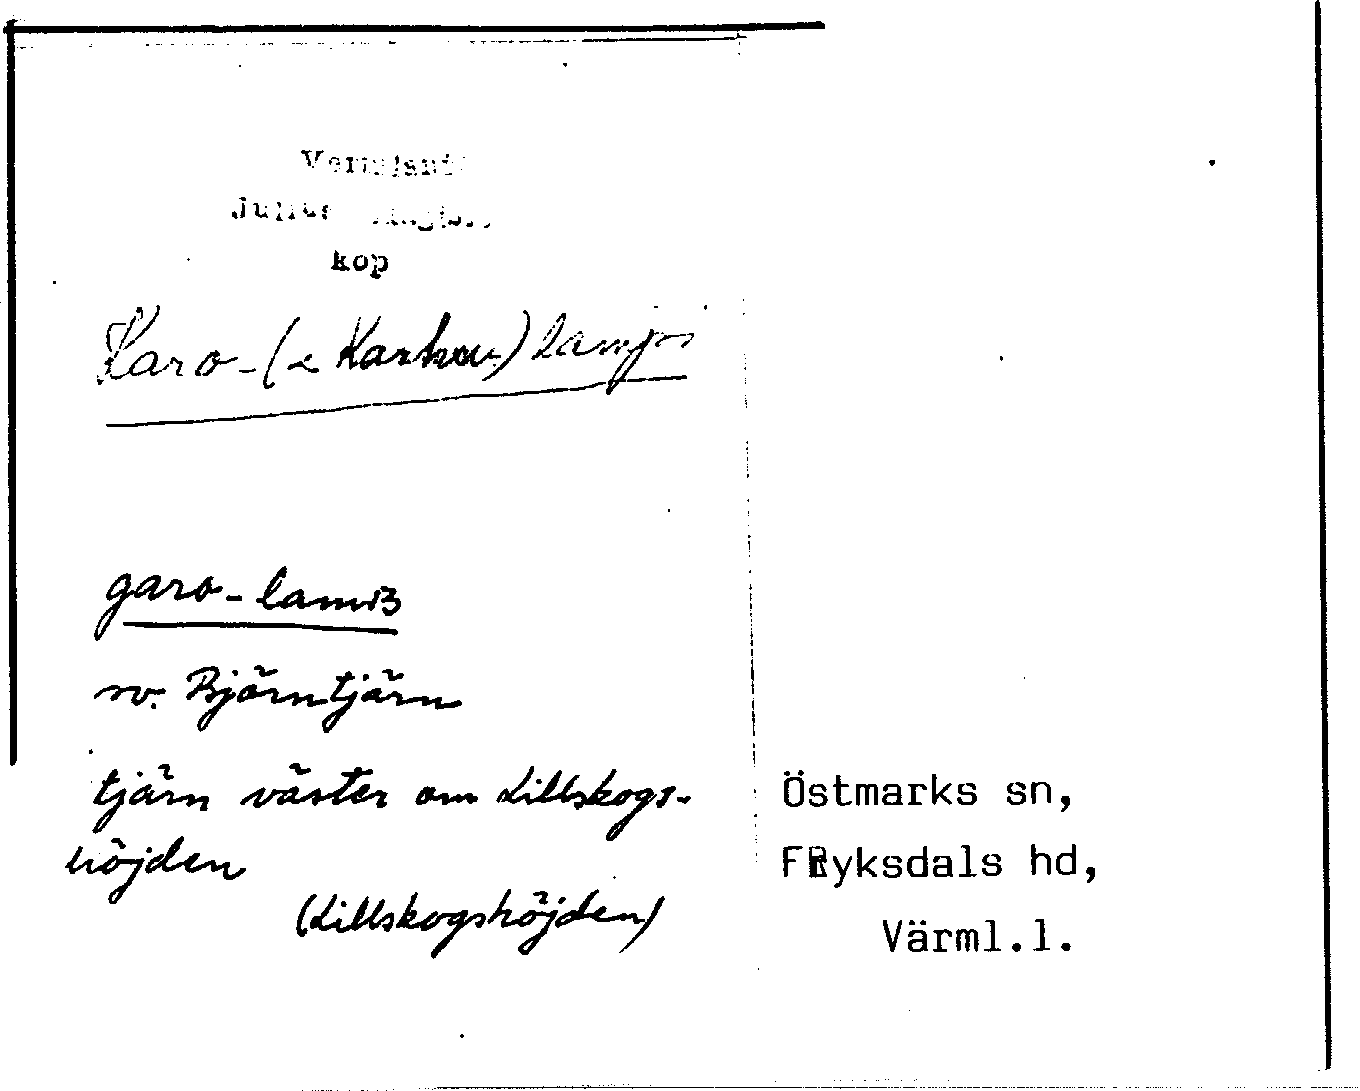 Julius
kop
Karo-( Karhu-) lampi
garo-lamʙ
sv. Björntjärn
tjärn väster om Lillskogs-
höjden
(Lillskogshöjden)
Östmarks sn,
FRyksdals hd,
Värml.l.